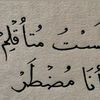 لستُ متأقلم
أنا مضطر